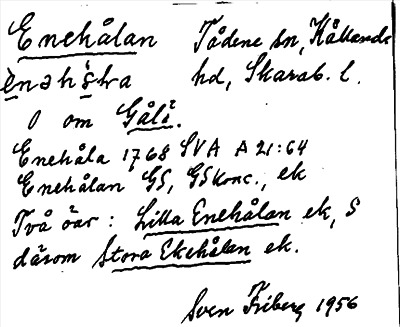 Enehålan Tådene sn, Kållands
hd, Skarab. l.
O om Gåli².
Enehåla 1768 SVA A 21:64
Enehålan GS, GSkonc., ek
Två öar: Lilla Enehålan ek, S
därom Stora Ekehålan ek.
Sven Friberg 1956